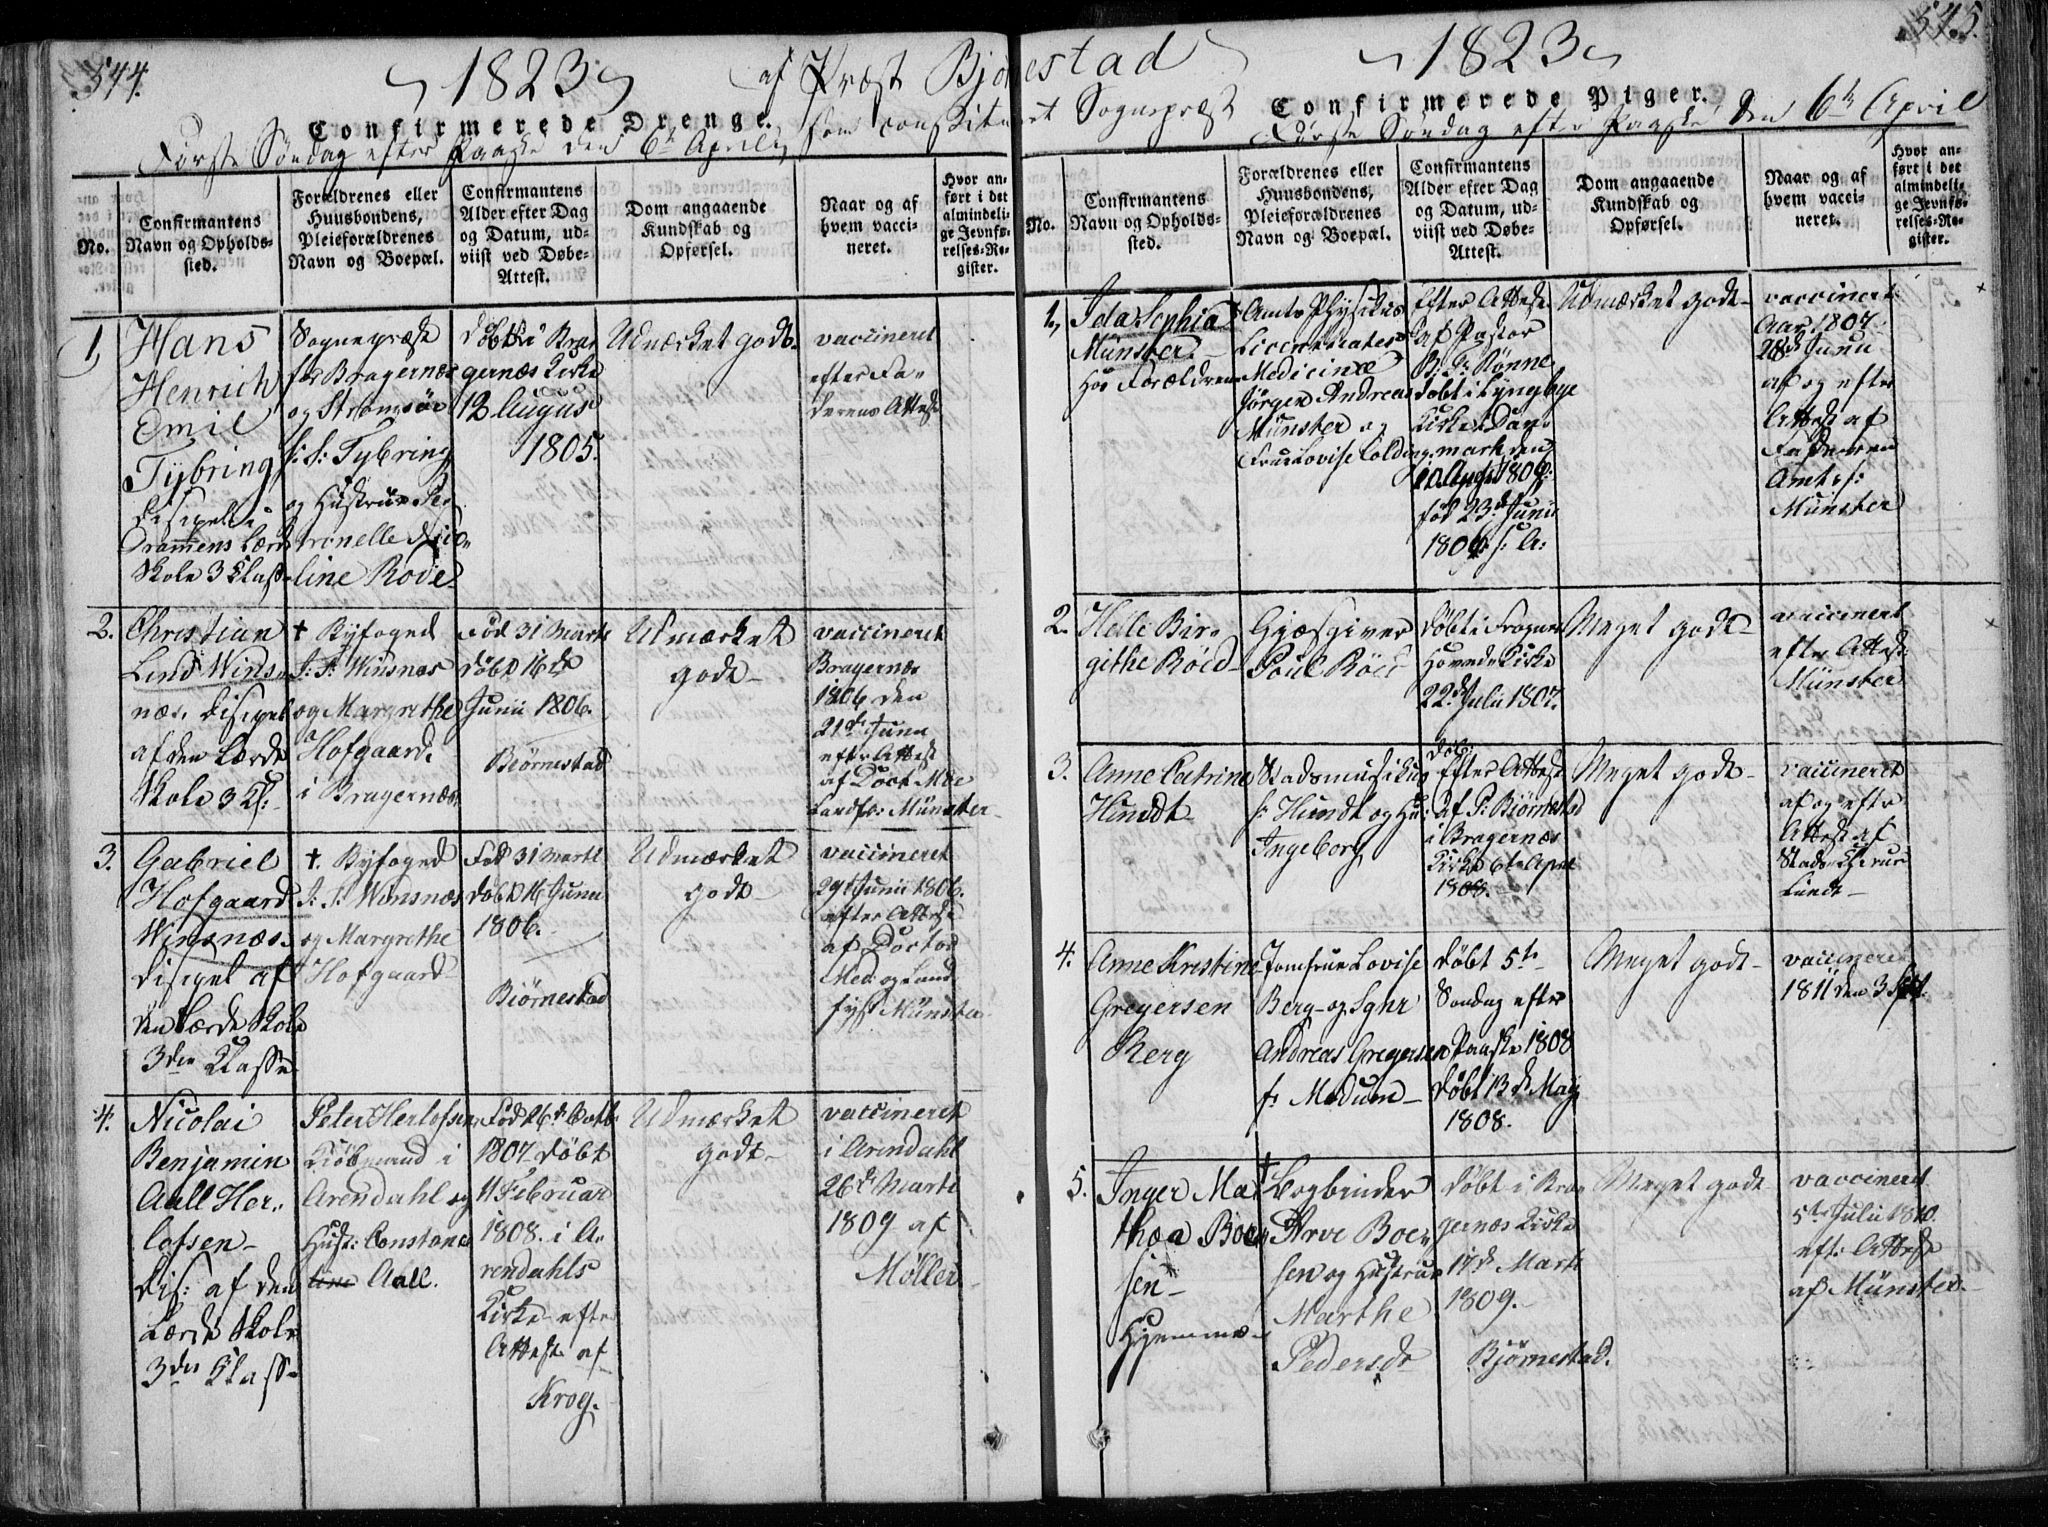 544.
1823
af Præst Bjørnestad
Confirmerede Drenge.
som constitueret Sognepræst
Første Søndag efter Paaske den 6te April
No.
Confirmantens
Navn og Opholds-
sted.
Forældrenes eller
Huusbondens,
Pleieforældrenes
Navn og Boepæl.
Confirmantens
Alder efter Dag
og Datum, ud-
viist ved Døbe-
Attest.
Dom angaaende
Kundskab og
Opførsel.
Naar og af
hvem vacci-
neret.
Hvor an-
ført i det
almindeli-
ge Jevnfø-
relses-Re-
gister.
1,
Hans
Henrich
Emil
Tybring
Discipel i
Drammens Lærde
Skole 3 Klasse
Sognepræst
for Bragernæs
og Strømsøe
Tybring
og Hustrue Pe-
tronelle Nico-
line Rode
Døbt i Bra-
gernæs Kirke
12 August
1805.
Udmærket godt.
vaccineret
efter Fa-
derens Attest
2.
Christian
Lind Wins-
næs. Discipel
af den Lærde
Skole 3 Kl:
† Byfoged
J: J: Winsnæs
og Margrethe
Hofgaard
i Bragernæs
Fød 31 Marts
døbt 16de
Junii 1806.
Bjørnestad
Udmærket
godt
vaccineret
Bragernæs
1806 den
21de Junii
efter Attest
af Doct Me
Landfs: Münster
3.
Gabriel
Hofgaard
Winsnæs.
Discipel af
den Lærde Skole
3die Klasse
† Byfoged
J: J: Winsnæs
og Margrethe
Hofgaard
Fød 31 Marts
Døbt 16 Junii
1806.
Bjørnestad
Udmærket
godt
vaccineret
29de Junii 1806.
efter Attest
af Doctor
Med og Land
fys: Münster
4.
Nicolai
Benjamin
Aall Her-
lofsen
Dis: af den
Lærde Skole
3die Klasse
Peter Herlofsen
Kiøbmand i
Arendahl og
Hust: Constance
Aall.
Fød 26de Octb:
1807 Døbt
11 Februar
1808. i A-
rendahls
Kirke efter
Attest af
Krog.
Udmærket
godt
vaccineret
i Arendahl
26de Marts
1809 af
Møller
545.
1823
Confirmerede Piger.
Første Søndag efter Paaske den 6te April
No.
Confirmantens
Navn og Opholds-
sted.
Forældrenes eller
Huusbondens,
Pleieforældrenes
Navn og Boepæl.
Confirmantens
Alder efter Dag
og Datum, ud-
viist ved Døbe-
Attest.
Dom angaaende
Kundskab og
Opførsel.
Naar og af
hvem vacci-
neret.
Hvor an-
ført i det
almindeli-
ge Jevnfø-
relses-Re-
gister.
1,
Ida Sophia
Münster.
Hos Forældrene
Amts Physikus
Licentiates
Medicinæ
Jørgen Andreas
Münster og
Frue Lovise Colding
Efter Attest
af Pastor
B: Fr: Rønne
døbt i Lyngbye
Kirke i Dan-
mark den
10 Aug: 1806:
fød 23de Junii
1806. s: A:
Udmærket godt
vaccineret
Aar 1807
28de Junii
af og efter
Attest af
Faderen
Amts f:
Münster
2.
Helle Bir-
githe Röed
Gjæsgiver
Poul Röed
Døbt i Frogner
Hovede Kirke
22de Julii 1807.
Meget godt
vaccineret
efter Attest
Münster
3.
Anne Catrine
Hundt
Stadsmusikus
Hundt og Hu:
Ingeborg
Døbt
Efter Attest
af P: Bjørnestad
i Bragernæs
Kirke 6te April
1808.
Meget godt
vaccineret
af og efter
Attest af
Stads Chirur
Lundt
4.
Anne Kristine
Gregersen
Berg
Jomfrue Lovise
Berg og Sgnr
Andreas Gregersen
fr Modum
Døbt 5te
Søndag efter
Paaske 1808
Døbt 13de Maj
1808.
Meget godt
vaccineret
1811 den 3 Sept.
5.
Inger Ma-
thea Boe-
sen
Hjemme
† Bogbinder
Arve Boe-
sen og Hustrue
Marthe
Pedersdr
Døbt i Bra-
gernæs Kirke
17de Marts
1809.
Bjørnestad.
Meget godt
vaccineret
5te Julii 1810.
eft: Attest
af Münster.